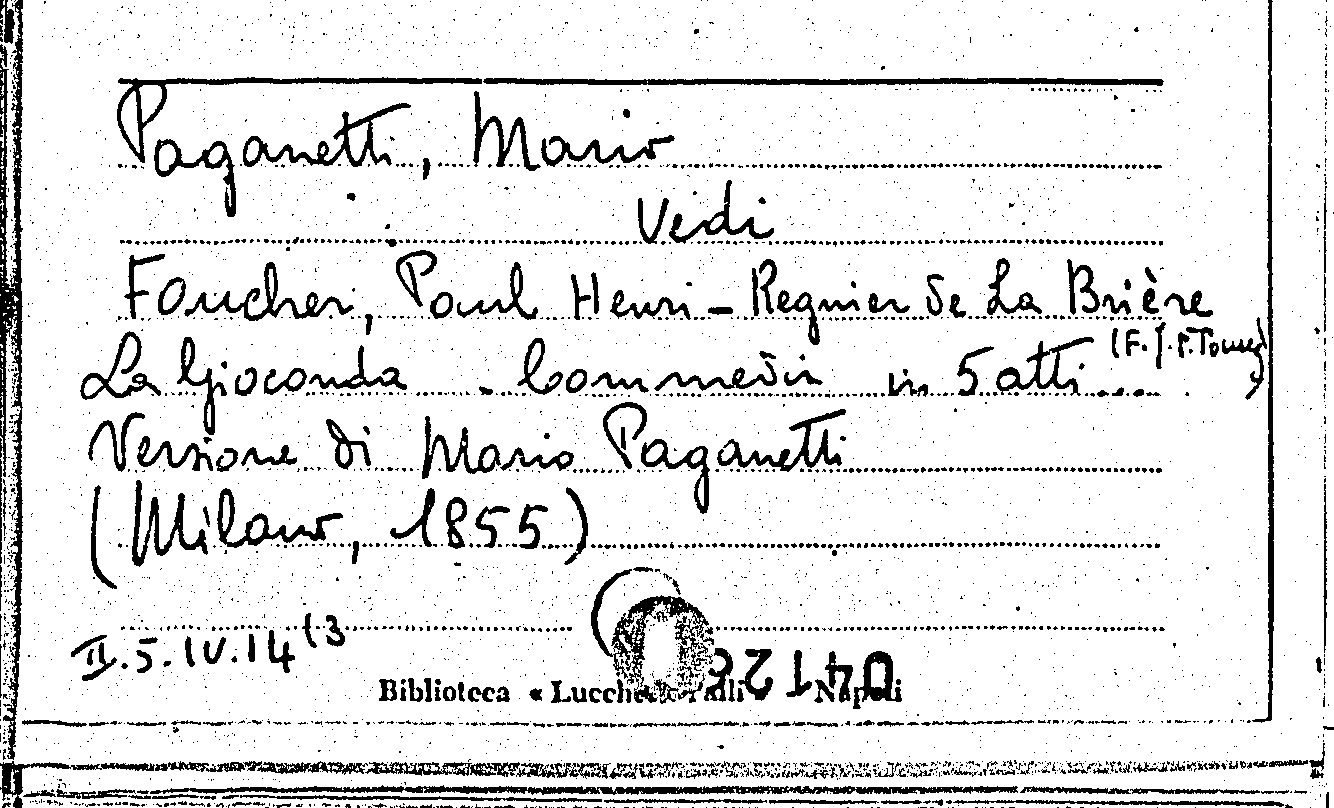 Paganetti, Mario
Vedi
Foucher, Paul Henri - Regnier de La Brière
La Gioconda. Commedia in 5 atti...
Versione di Mario Paganetti
(Milano, 1855)
II.5.IV.14 (3
Biblioteca « Lucchesi Palli » Napoli